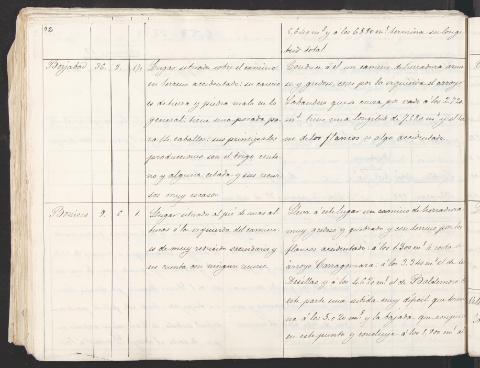 92
y á los 6880 mᵗ termina su longi
tud total
Borjabad 36. 9.
Lugar situado sobre el camino
en terreno accidentado: su camino
es de tierra y piedra malo en lo
general: tiene una posada pa
ra 14 caballos: sus principales
producciones son el trigo cente
no y alguna cebada y sus recur
sos muy escasos
Conduce á él un camino de herradura
y por la izquierda el arroyo
que se cruza por vado á los 2.720
mᵗ tiene una longitud de 7.280 mᵗ y el terre
no de los flancos es algo accidentado.
9. 6 1.
Lugar situado al pié de unas al
turas á la izquierda del camino
es de muy reducido vecindario y
no cuenta con ningun recurso.
Lleva á este lugar un camino de herradura
muy y quebrado y con terreno por los
flancos accidentado: á los 1.300 mᵗ corta el
arroyo Carragomara: á los 3.340 mᵗ el de las
y á los 4.620 mᵗ el de
esta parte una subida muy dificil que termi
na á los 5.020 mᵗ y la bajada que empieza
en este punto y concluye á los 1.900 mᵗ al